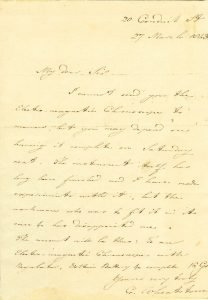 20 Conduit St
27 March 1843
My dear Sir
I cannot send you the
Electro-magnetic Chronoscope to
morrow, but you may depend on
having it complete on Saturday
next. The instrument itself has
long been finished and I have made
experiments with it, but the
workman who was to fit it in its
case to has disappointed me.
The amount will be thus: to one
Electro-magnetic Chronoscope with
Battery to complete
Yours very truly
C. Wheatstone